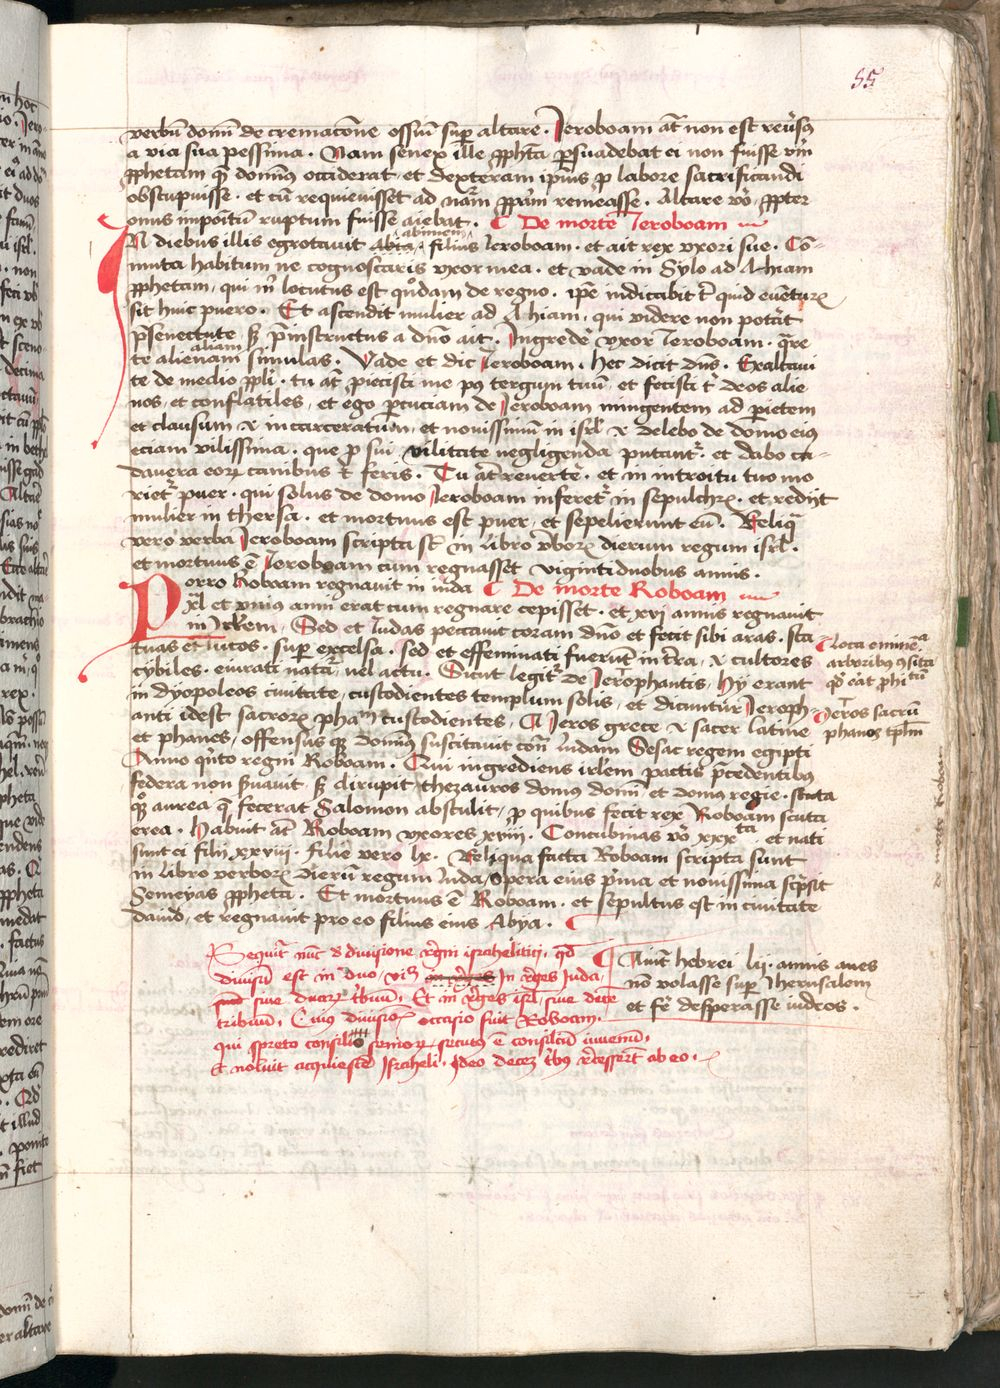 55
verbū domī de cremacōne ossiū sup altare. Jeroboam āt non est reūsꝯ
a via sua pessima. Nam senex ille ꝓphta psuadebat ei non fuisse vm̄
ꝓphetam q̄ domīꝯ occiderat et dexteram ipīus p labore sacrificandi
obstupuisse. et cū requieuisset ad nr̄am ppriā remeasse. Altare vo ꝓpter
onus impoītū ruptum fuisse aiebat. De morte Jeroboam
IN diebus illis egrotauit abia abimem filius Ieroboam. et ait rex vxori sue. Cō-
muta habitum ne cognoscaris vxor mea. et vade in Sylo ad Ahiam
ꝓphetam, qui m̄ locutus est qd̄dam de regno. ipē indicabit t̄ quid euenturꝫ
sit huic puero. Et ascendit mulier ad Ahiam, qui videre non potāt
p̄senectute, sꝫ p̄instructus a dn̄o ait. Ingrede vxor Jeroboam. q̄re
te alienam aliam simulas. Vade et dic Jeroboam. hec dicit dn̄s. Exaltaui
te de medio ppli. tu āt ꝓiecisti me pꝯ tergum tuū, et fecisti t̄ deos alie
nos, et conflatiles, et ego pcuciam de Jeroboam mingentem ad pietem
et clausum et incarceratum, et nouissimū in isrl et delebo de domo eiꝯ
eciam vilissima. que p sui vilitate negligenda putant. et dabo ca-
dauera eorꝫ canibus et feris. Tu āt reuerte. et in introitu tuo mo
riet puer. qui solus de domo Jeroboam inferet in sepulchrꝫ. et redijt
mulier in thersa. et mortuus est puer, et sepelierunt eū. Reliqa
vero verba Jeroboam scripta st̄ in libro vborꝫ dierum regum isrl.
et mortuus ē Jeroboam cum regnasset viginti duobus annis.
Porro Roboam regnauit in iuda De morte Roboam
xl et vnius anni erat cum regnare cepisset. et xvi annis regnauit
in Irlem, Sed et Iudas peccauit coram dn̄o et fecit sibi aras. sta
tuas et lucos. sup excelsa. sed et effeminati fuerūt in t̄ra, et cultores
cybiles. euirati natā vel actu. Sicut legit de Jerophantis, hy erant
in dyopoleos ciuitate, custodientes templum solis, et dicuntur Jeroph-
anti idest sacrorꝫ phan̄ custodientes, Jeros grece et sacer latine
et phanes, offensus qꝫ domīꝯ suscitauit con̄ iudam Sesac regem egipti
Anno qnto regni Roboam. Qui ingrediens irlem pactis p̄cedentibꝯ
federa non s̄uauit sꝫ diripuit thezauros domus domī et domus regie. scuta
qꝫ aurea q̄ fecerat Salomon abstulit, p quibus fecit rex Roboam scuta
erea. Habuit āt Roboam vxores xviii. Concubinas vo xxxta. et nati
sunt ei filii xxviii. filie vero lx. Reliqua facta Roboam scripta sunt
in libro verborꝫ dierū regum iuda, Opera eius pma et nouissima scpsit
Semeyas ꝓpheta. Et mortuus ē Roboam. et sepultus est in ciuitate
dauid, et regnauit pro eo filius eius Abya.
Loca eminē
arboribꝯ ꝯsita
Jeros sacrū
phanos tplm
De morte Roboam
Sequit nūc de diuisione regni israhelitici, qd
diuisū est in duo, In reges Juda,
siue duarꝫ tbuū, Et in reges isrl, siue dece
tribuū, Cuius diuisioꝫ occasio fuit Roboam.
qui spreto consilio seniorꝫ secutus ē consiliū iuuenū,
et noluit acquiesce Israheli. Ideo decē tbꝯ recesserūt ab eo.
Aiunt hebrei lii. annis aues
nō volasse sup Jherusalem
et fe desperasse iudeos.